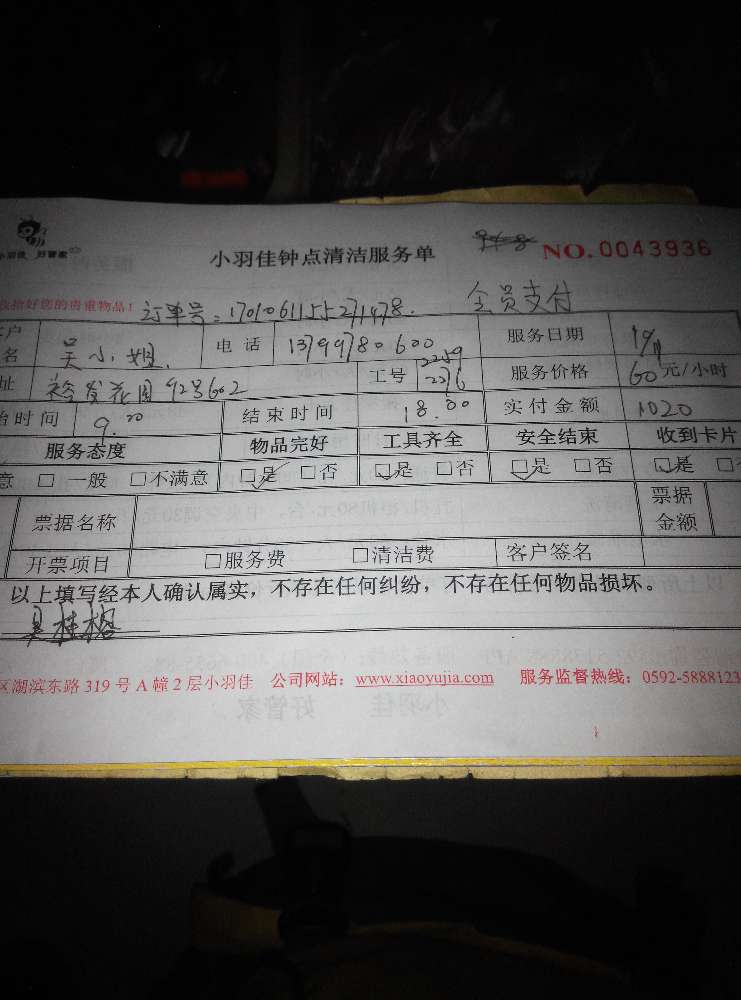 小羽佳 好管家
小羽佳钟点清洁服务单
NO. 0043936
收拾好您的贵重物品！ 订单号：1701061155271478. 会员支付
名 吴小姐. 电 话 13799780600 服务日期
址 裕发花园 92号602 工号 2259 2276 服务价格 60元/小时
始时间 9.00 结束时间 18.00 实付金额 1020
服务态度 物品完好 工具齐全 安全结束 收到卡片
意 □ 一般 □不满意 □是 □否 □是 □否 □是 □否 □是
票据名称 票据金额
开票项目 □服务费 □清洁费 客户签名
以上填写经本人确认属实，不存在任何纠纷，不存在任何物品损坏。
区湖滨东路 319 号 A 幢 2 层小羽佳 公司网站：www.xiaoyujia.com 服务监督热线：0592-5888123